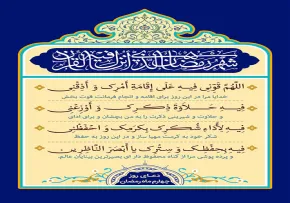 شهر رمضان الذی انزل فیه القرآن
اَللّهُمَّ قَوِّنی فیهِ عَلی اِقامَةِ اَمْرِکَ وَ اَذِقْنی
خدایا مرا در این روز برای اقامه و انجام فرمانت قوت بخش
فیهِ حَلاوَةَ ذِکْرِکَ وَ اَوْزِعْنی
و حلاوت و شیرینی ذکرت را به من بچشان و برای ادای
فیهِ لِأَداءِ شُکْرِکَ بِکَرَمِکَ وَ احْفَظْنی
شکر خود به کرمت مهیا ساز و در این روز به حفظ
فیهِ بِحِفْظِکَ وَ سِتْرِکَ یا اَبْصَرَ النّاظِرینَ
و پرده پوشی مرا از گناه محفوظ دار ای بصیرترین بینایان عالم
دعای روز
چهارم ماه رمضان